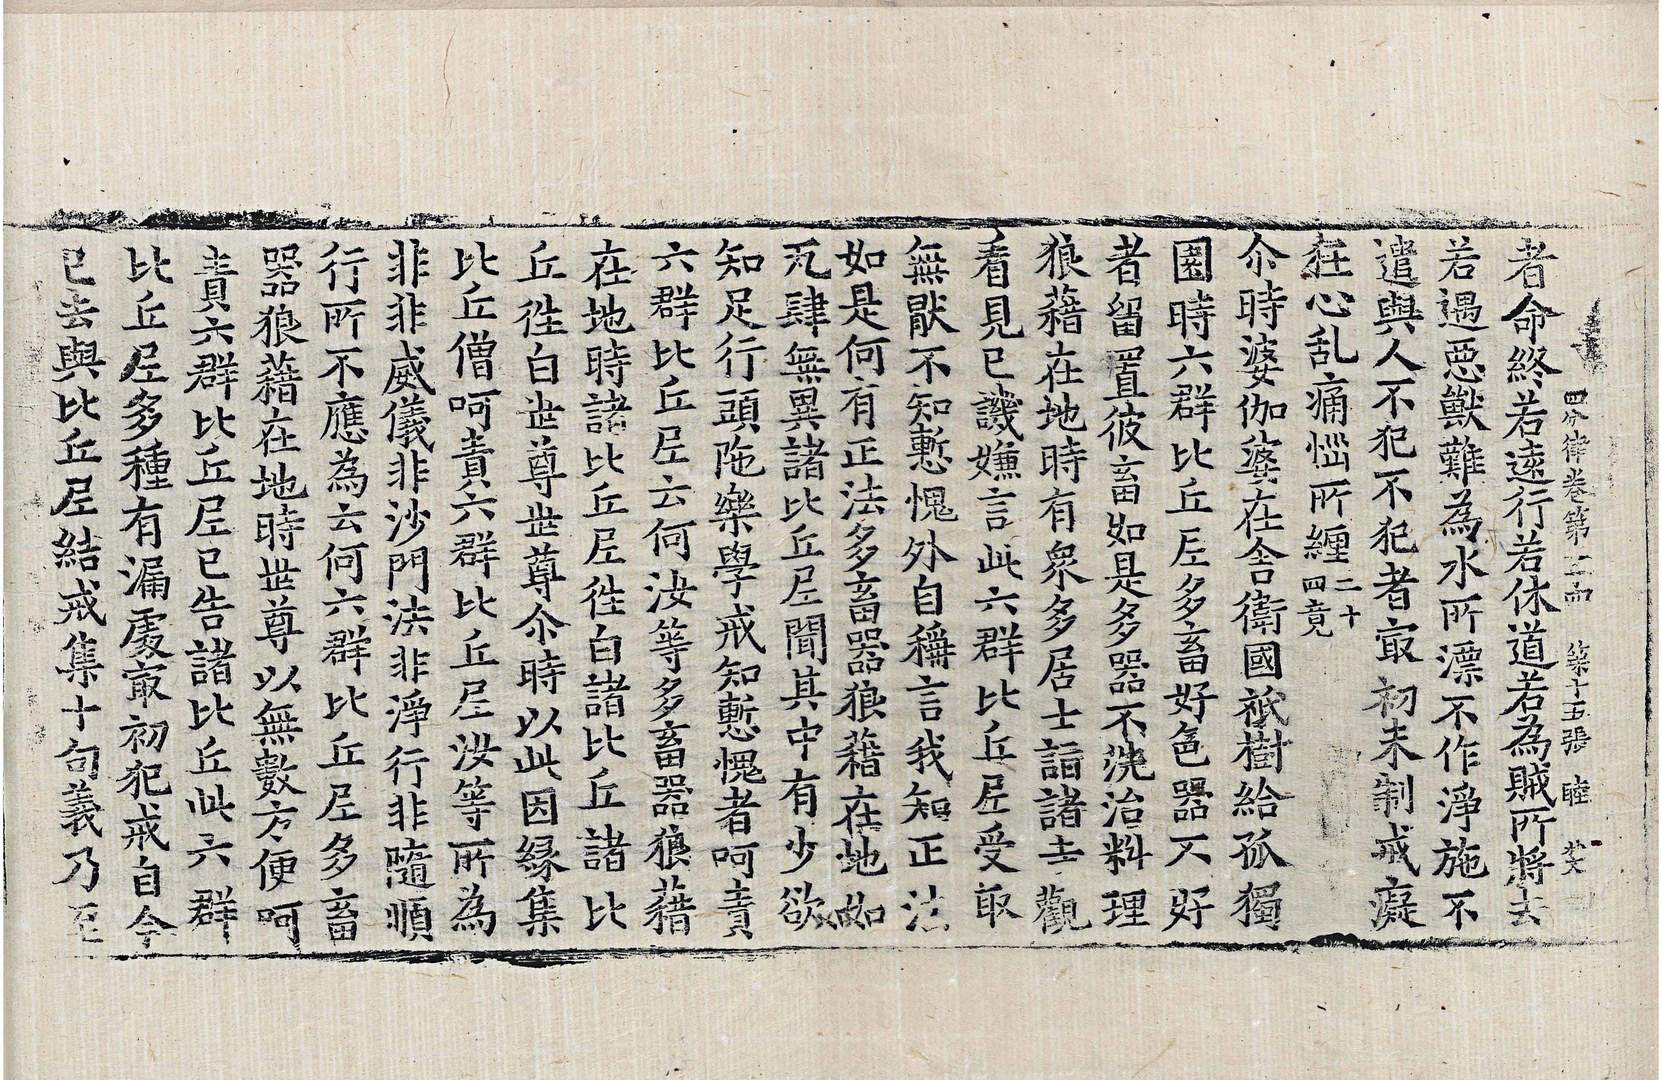 四分律卷第二十四 第十五張 睦
者命終若遠行若休道若為賊所將去
若遇惡獸難為水所漂不作淨施不
遣與人不犯不犯者㝡初未制戒癡
狂心乱痛惱所纏二十四竟
尒時婆伽婆在舍衛國祇樹給孤獨
園時六群比丘尼多畜好色器不好
者留置彼畜如是多器不洗治料理
狼藉在地時有衆多居士詣諸寺觀
看見已譏嫌言此六群比丘尼受取
無猒不知慙愧外自稱言我知正法
如是何有正法多畜器狼藉在地如
瓦肆無異諸比丘尼聞其中有少欲
知足行頭陁樂學戒知慙愧者呵責
六群比丘尼云何汝等多畜器狼藉
在地時諸比丘尼徃白諸比丘諸比
丘徃白世尊世尊尒時以此因緣集
比丘僧呵責六群比丘尼汝等所為
非非威儀非沙門法非淨行非隨順
行所不應為云何六群比丘尼多畜
器狼藉在地時世尊以無數方便呵
責六群比丘尼已告諸比丘此六群
比丘尼多種有漏處㝡初犯戒自今
已去與比丘尼結戒集十句義乃至